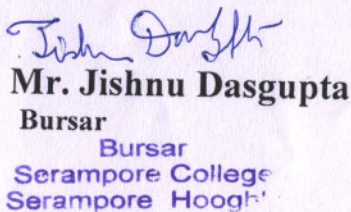 Jishnu Dasgupta
Mr. Jishnu Dasgupta
Bursar
Bursar
Serampore College
Serampore Hoogh